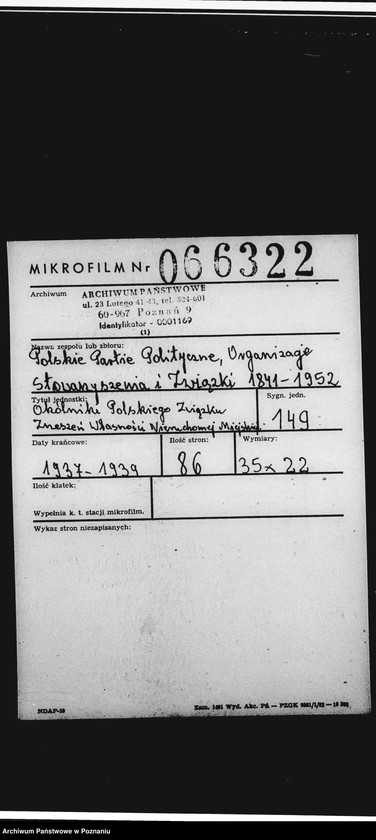 MIKROFILM Nr 066322
Archiwum
ARCHIWUM PAŃSTWOWE
ul. 23 Lutego 41-43, tel. 524-601
60-967 Poznań 9
Identyfikator - 0001169
(1)
Nazwa zespołu lub zbioru:
Polskie Partie Polityczne, Organizacje
Stowarzyszenia i Związki 1841-1952
Tytuł jednostki:
Okólniki Polskiego Związku
Zrzeszeń Własności Nieruchomej Miejskiej
Sygn. jedn.
149
Daty krańcowe:
1937-1939
Ilość stron:
86
Wymiary:
35x22
Ilość klatek:
Wypełnia k. t. stacji mikrofilm.
Wykaz stron niezapisanych:
NDAP-10
Zam. 1461 Wyd. Akc. Pń — PZGK
Archiwum Państwowe w Poznaniu